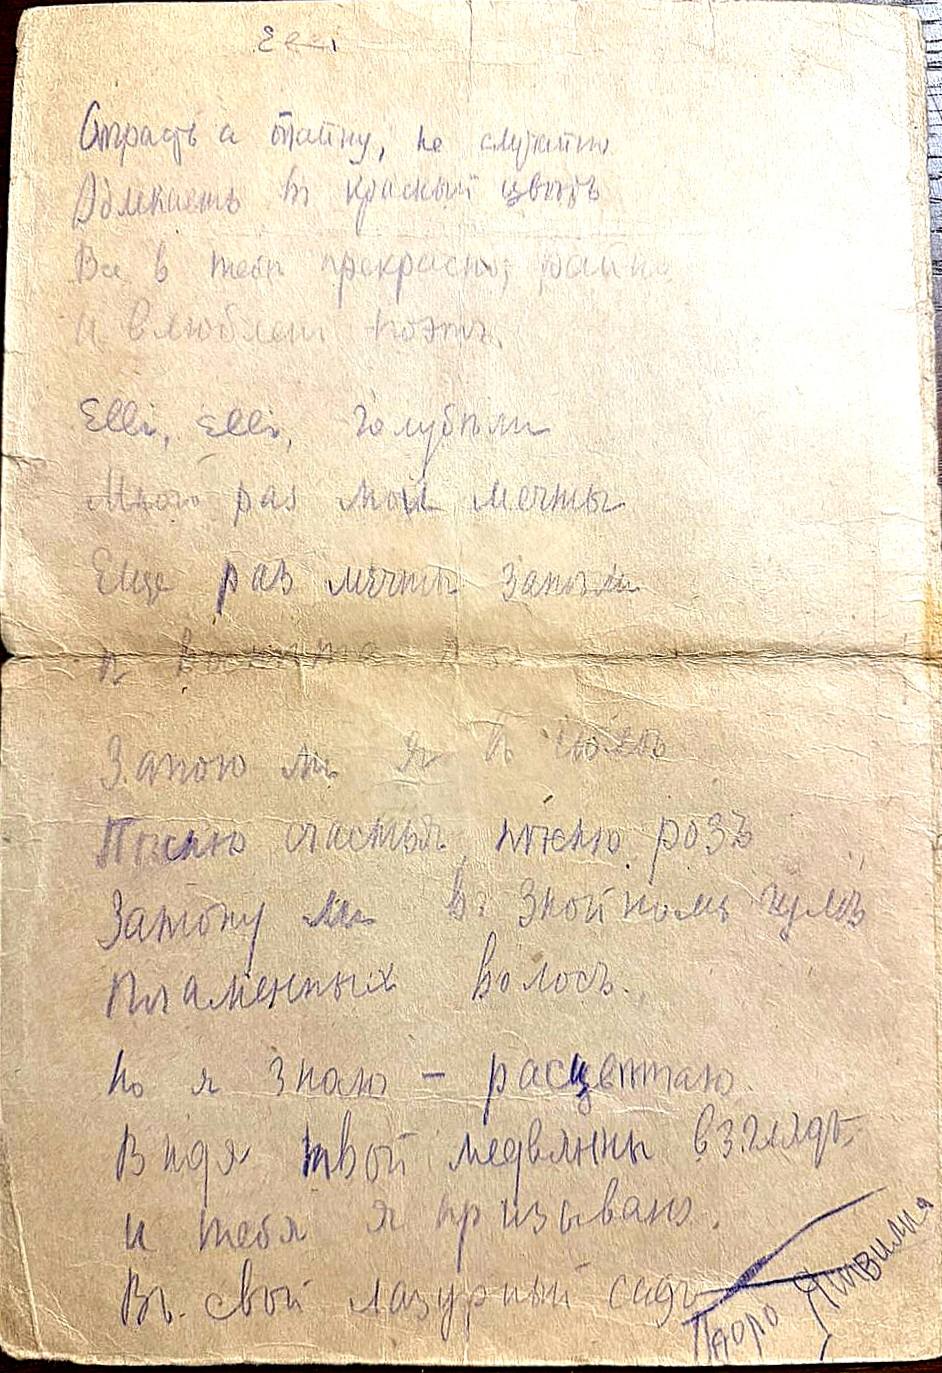 Elli
Страсть а тайну, не случайно
Облекаетъ въ красный цвѣтъ
Все в тебѣ прекрасно, тайно
И влюбленъ поэтъ.
Elli, Elli, голубѣли
Много раз мои мечты
Еще раз мечты запѣли
И
Запою ли я
Пѣсню счастья, пѣсню розъ
Затону ли въ знойномъ
Пламенныхъ волосъ.
Но я знаю – расцвѣтаю
Видя твой медвяный взглядъ
И тебя я призываю
Въ свой лазурный садъ
Паоло Яшвили